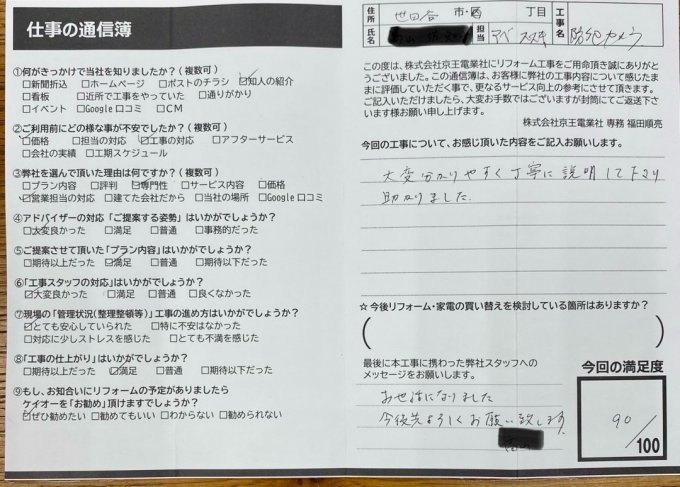 仕事の通信簿
①何がきっかけで当社を知りましたか？(複数可)
□新聞折込 □ホームページ □ポストのチラシ ☑知人の紹介
□看板 □近所で工事をやっていた □通りがかり
□イベント □Google口コミ □CM
②ご利用前にどの様な事が不安でしたか？(複数可)
☑価格 □担当の対応 ☑工事の対応 □アフターサービス
□会社の実績 □工期スケジュール
③弊社を選んで頂いた理由は何ですか？(複数可)
□プラン内容 □評判 ☑専門性 □サービス内容 □価格
☑営業担当の対応 □建てた会社だから □当社の場所 □Google口コミ
④アドバイザーの対応「ご提案する姿勢」はいかがでしょうか？
☑大変良かった □満足 □普通 □事務的だった
⑤ご提案させて頂いた「プラン内容」はいかがでしょうか？
□期待以上だった ☑満足 □普通 □期待以下だった
⑥「工事スタッフの対応」はいかがでしょうか？
☑大変良かった □満足 □普通 □良くなかった
⑦現場の「管理状況(整理整頓等)」工事の進め方はいかがでしょうか？
☑とても安心していられた □特に不安はなかった
□対応に少しストレスを感じた □とても不満を感じた
⑧「工事の仕上がり」はいかがでしょうか？
□期待以上だった ☑満足 □普通 □期待以下だった
⑨もし、お知合いにリフォームの予定がありましたら
ケイオーを「お勧め」頂けますでしょうか？
☑ぜひ勧めたい □勧めてもいい □わからない □勧められない
住所 世田谷 市・区 丁目
氏名 担当 アベ 工事名 防犯カメラ
この度は、株式会社京王電業社にリフォーム工事をご用命頂き誠にありがとう
ございました。この通信簿は、お客様に弊社の工事内容について感じたまま
に評価していただく事で、更なるサービス向上の参考にさせて頂きます。
ご記入いただけましたら、大変お手数ではございますが封筒にてご返送下さ
います様お願い申し上げます。
株式会社京王電業社 専務 福田順亮
今回の工事について、お感じ頂いた内容をご記入お願いします。
大変分かりやすく丁寧に説明して下さり
助かりました。
☆今後リフォーム・家電の買い替えを検討している箇所はありますか？
最後に本工事に携わった弊社スタッフへの
メッセージをお願いします。
お世話になりました
今後共よろしくお願い致します
今回の満足度
90
/100